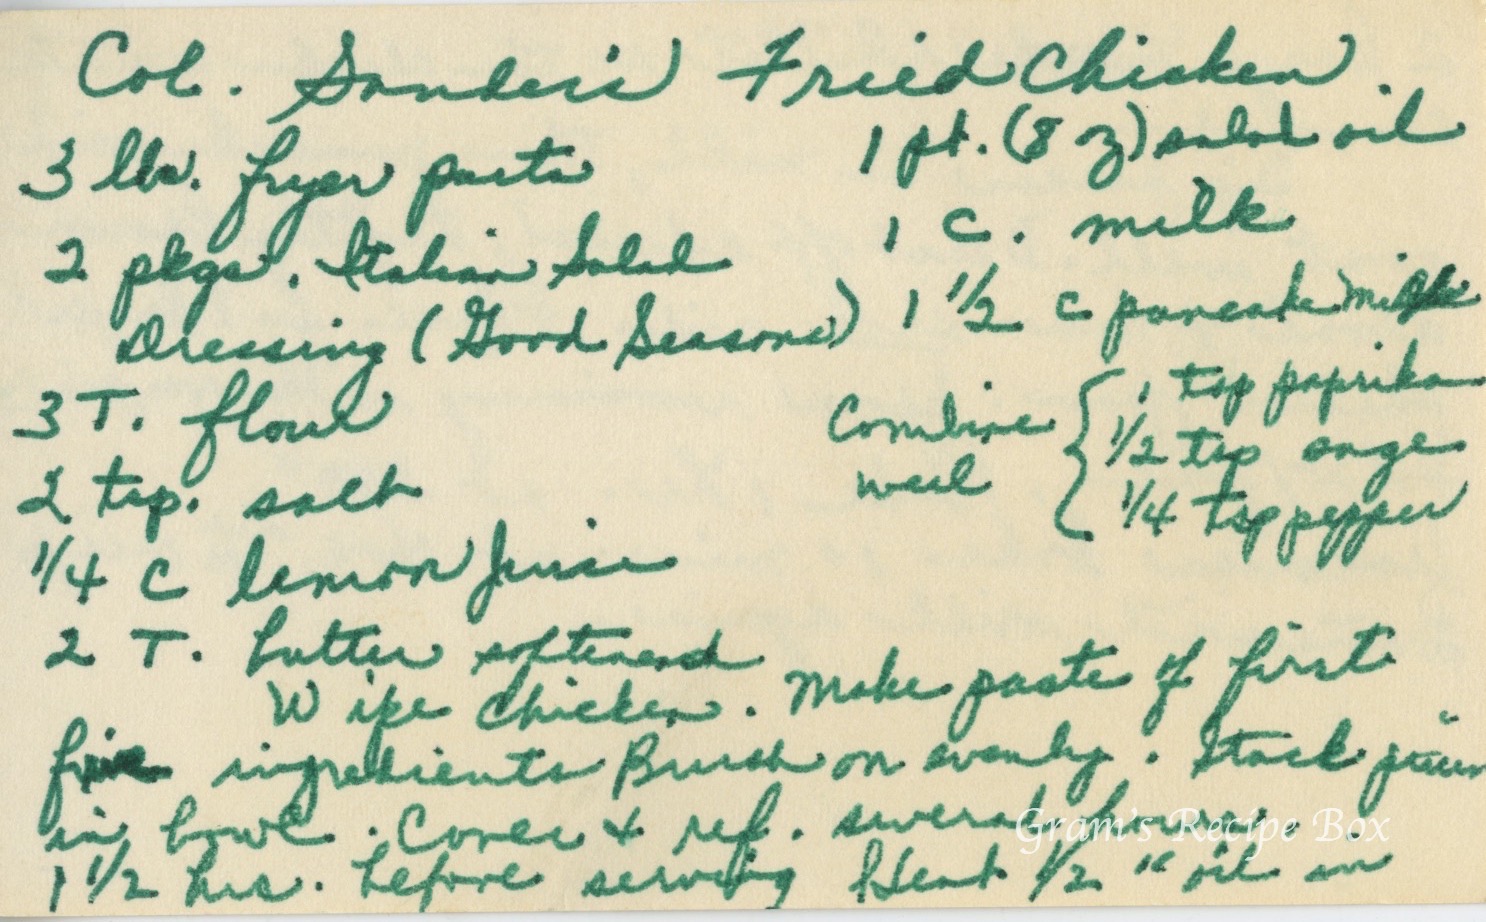 Col. Sanders' Fried Chicken.
3 lbs. fryer parts
2 pkgs. Italian Salad
Dressing (Good Seasons)
3 T. flour
2 tsp. salt
1/4 C lemon juice
2 T. butter softened
1 pt. (8 oz) salad oil
1 C. milk
1 1/2 c pancake
Combine well { 1 tsp paprika
1/2 tsp sage
1/4 tsp pepper
Wipe chicken. Make paste of first
five ingredients Brush on evenly. Stack
in bowl. Cover & ref. several
1 1/2 hrs. before serving Heat 1/2 " oil in
Gram's Recipe Box